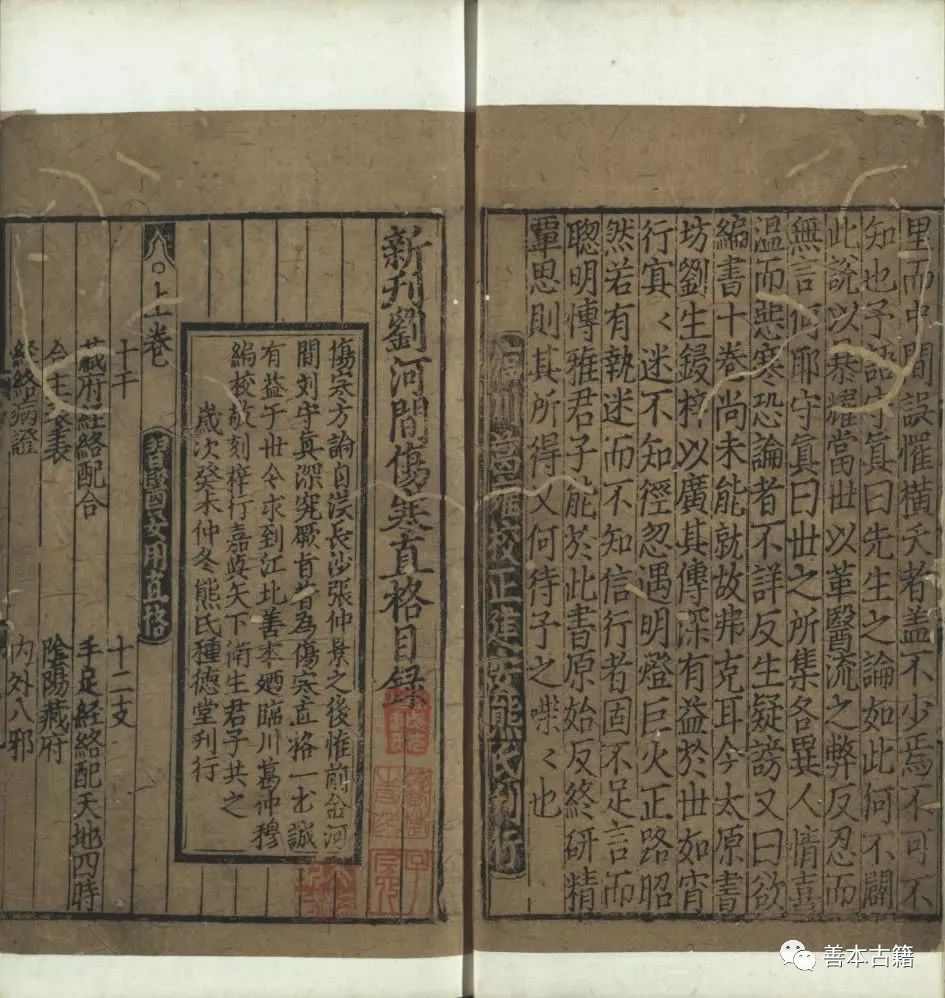 里而中間誤罹橫夭者盖不少焉不可不
知也予語守眞曰先生之論如此何不闢
此說以暴耀當世以革醫流之弊反忍而
無言何耶守眞曰世之所集各異人情喜
温而惡寒恐論者不詳反生疑謗又曰欲
編書十卷尚未能就故弗克耳今太原書
坊劉生鋟梓以廣其傳深有益於世如宵
行冥〻迷不知徑忽遇明燈巨火正路昭
然若有執迷而不知信行者固不足言而
聰明博雅君子能於此書原始反終研精
覃思則其所得又何待予之喋〻也
臨川葛雍校正建安熊氏刊行
新刊劉河間傷寒直格目錄
傷寒方論自漢長沙張仲景之後惟前金河
間刘守真深究厥旨著為傷寒直格一书誠
有益于世今求到江北善本廼臨川葛仲穆
編校敬刻梓行嘉與天下衛生君子共之
歲次癸未仲冬熊氏種德堂刊行
習醫要用直格
上卷
十干 十二支
藏府經絡配合 手足經絡配天地四時
陰陽藏府
経絡病證 內外八邪
善本古籍